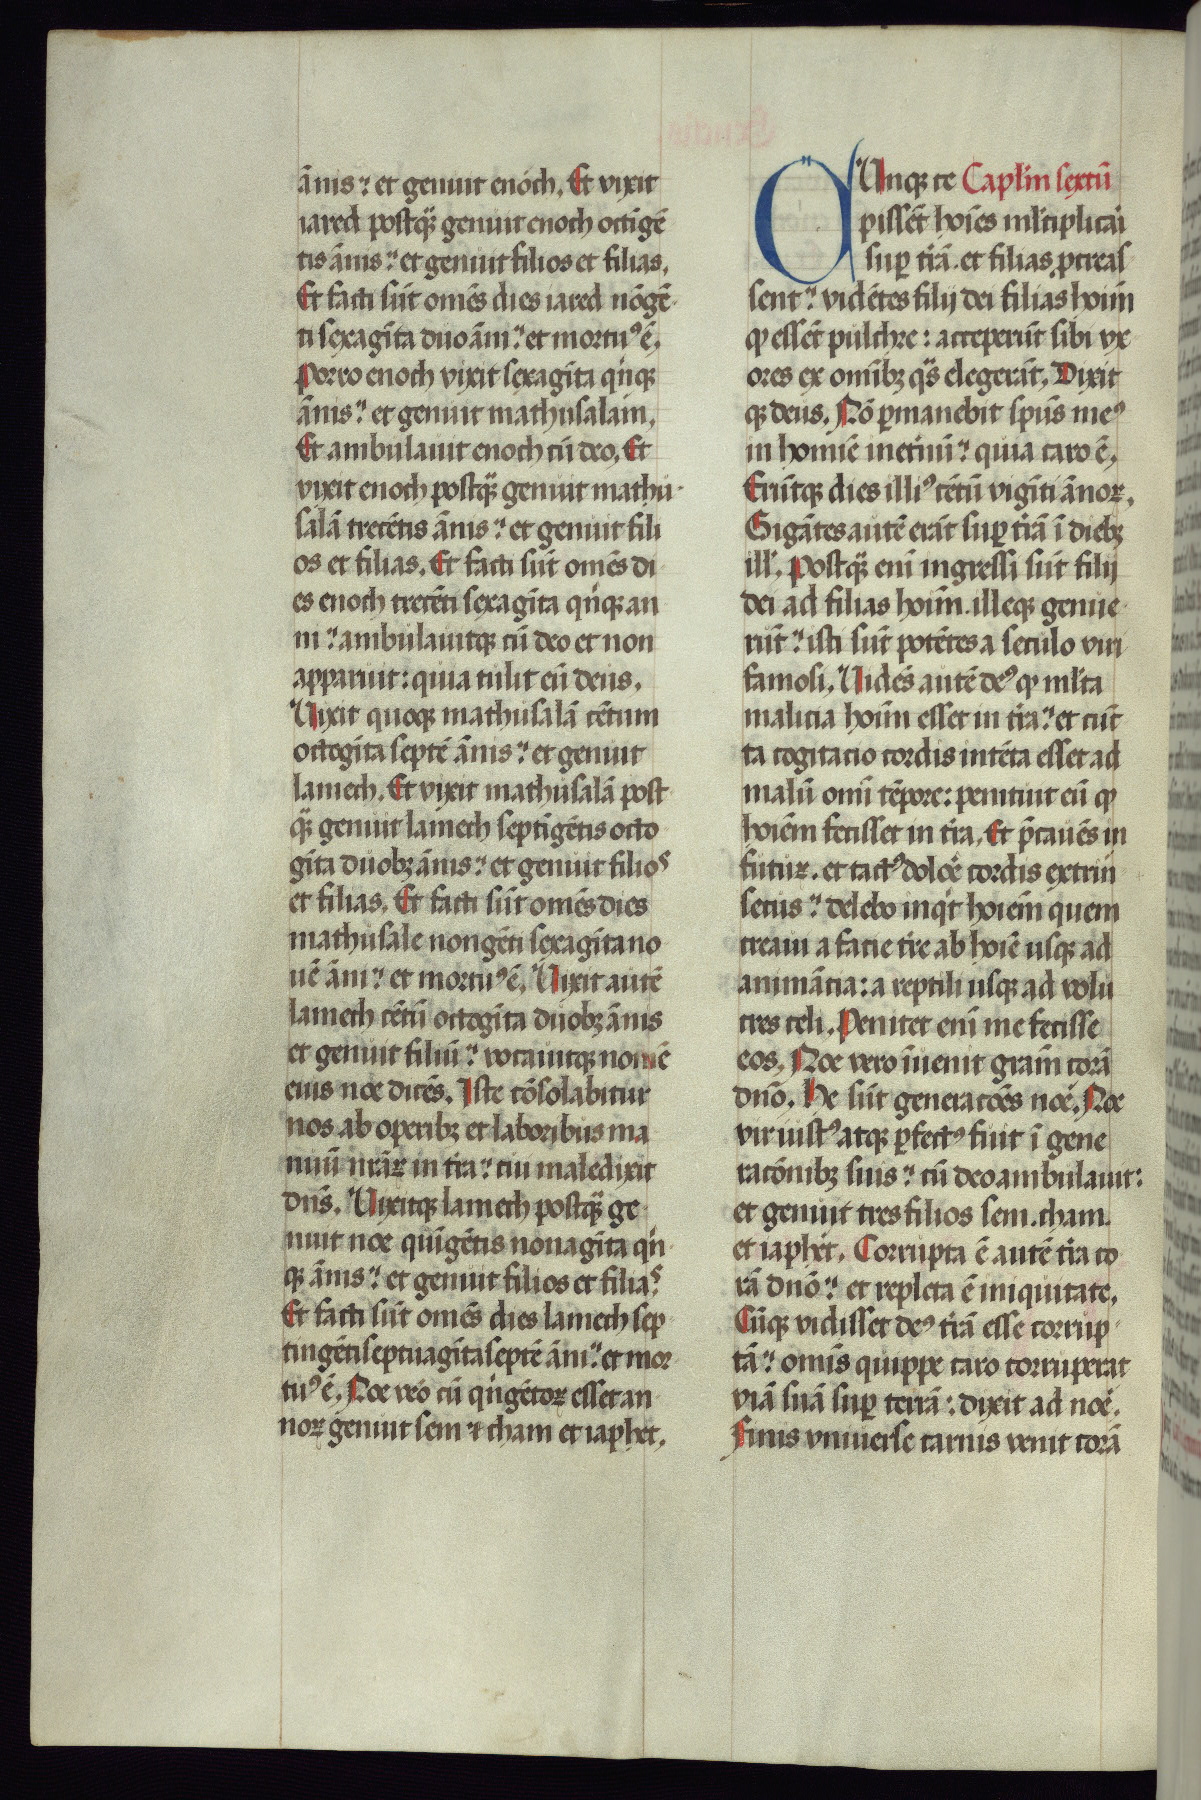 ānis: et genuit enoch. Et vixit
iared postq̄ genuit enoch octigē
tis ānis: et genuit filios et filias.
Et facti sūt omēs dies iared nōgē
ti sexagīta duo āni: et mortuꝰ ē.
Porro enoch vixit sexagīta qͥnqꝫ
ānis: et genuit mathusalam.
Et ambulauit enoch cū deo. Et
vixit enoch postq̄ genuit mathu
salā trecētis ānis: et genuit fili
os et filias. Et facti sūt omēs di
es enoch trecēti sexagīta qͥnqꝫ an
ni: ambulauitqꝫ cū deo et non
apparuit: quia tulit eū deus.
Vixit quoqꝫ mathusalā cētum
octogīta septē ānis: et genuit
lamech. Et vixit mathusalā post
q̄ genuit lamech septigētis octo
gīta duobꝫ ānis: et genuit filios
et filias. Et facti sūt omēs dies
mathusale nongēti sexagīta no
uē āni: et mortuꝰ ē. Vixit autē
lamech cētū octogīta duobꝫ ānis
et genuit filiū: vocauitqꝫ nomē
eius noe dicēs. Iste cōsolabitur
nos ab operibꝫ et laboribus ma
nuū nr̄aꝝ in tr̄a: cui maledixit
dn̄s. Vixitqꝫ lamech postq̄ ge
nuit noe quīgētis nonagīta qͥn
qꝫ ānis: et genuit filios et filias
Et facti sūt omēs dies lamech sep
tingēti septuagīta septē āni: et mor
tuꝰ ē. Noe vēo cū qͥngētoꝝ esset an
noꝝ genuit sem ⁊ cham et iaphet.
CUnqꝫ ce Caplm̄ sextū
pissēt hoīes ml̄tiplicari
suꝑ tr̄ā. et filias ꝓcreas
sent: vidētes filij dei filias hoīm
ꝙ essēt pulchre: acceperūt sibi vx
ores ex omībꝫ qͣs elegerāt. Dixit
qꝫ deus. Nō ꝑmanebit sp̄us meꝰ
in homīe in et̄nū: quia caro ē.
Erūtqꝫ dies illiꝰ cētū vigīti ānoꝝ.
Gigātes autē erāt suꝑ tr̄ā ī diebꝫ
ill̄. Postq̄ eni ingressi sūt filij
dei ad filias hoīm. illeqꝫ genue
rūt: isti sūt potētes a seculo viri
famosi. Vidēs autē deꝰ ꝙ ml̄ta
malicia hoīm esset in tr̄a: et cūc
ta cogitacio cordis intēta esset ad
malū omī tēpore: penituit eū ꝙ
hoīem fecisset in tr̄a. Et p̄cauēs in
futuꝝ. et tactꝰ doloē cordis extrin
secus: delebo inqͥt hoīem quem
creaui a facie tr̄e ab hoīe usqꝫ ad
animācia: a reptili usqꝫ ad volu
cres celi. Penitet eni me fecisse
eos. Noe vero īuenit grām corā
dn̄o. He sūt generacōes noe. Noe
vir iustꝰ atqꝫ ꝑfectꝰ fuit ī gene
racōnibꝫ suis: cū deo ambulauit:
et genuit tres filios sem. cham.
et iaphet. Corrupta ē autē tr̄a co
rā dn̄o: et repleta ē iniquitate.
Cūqꝫ vidisset deꝰ tr̄ā esse corrup
tā: om̄is quippe caro corruperat
viā suā suꝑ terrā: dixit ad noe.
Finis vniuerse carnis venit corā